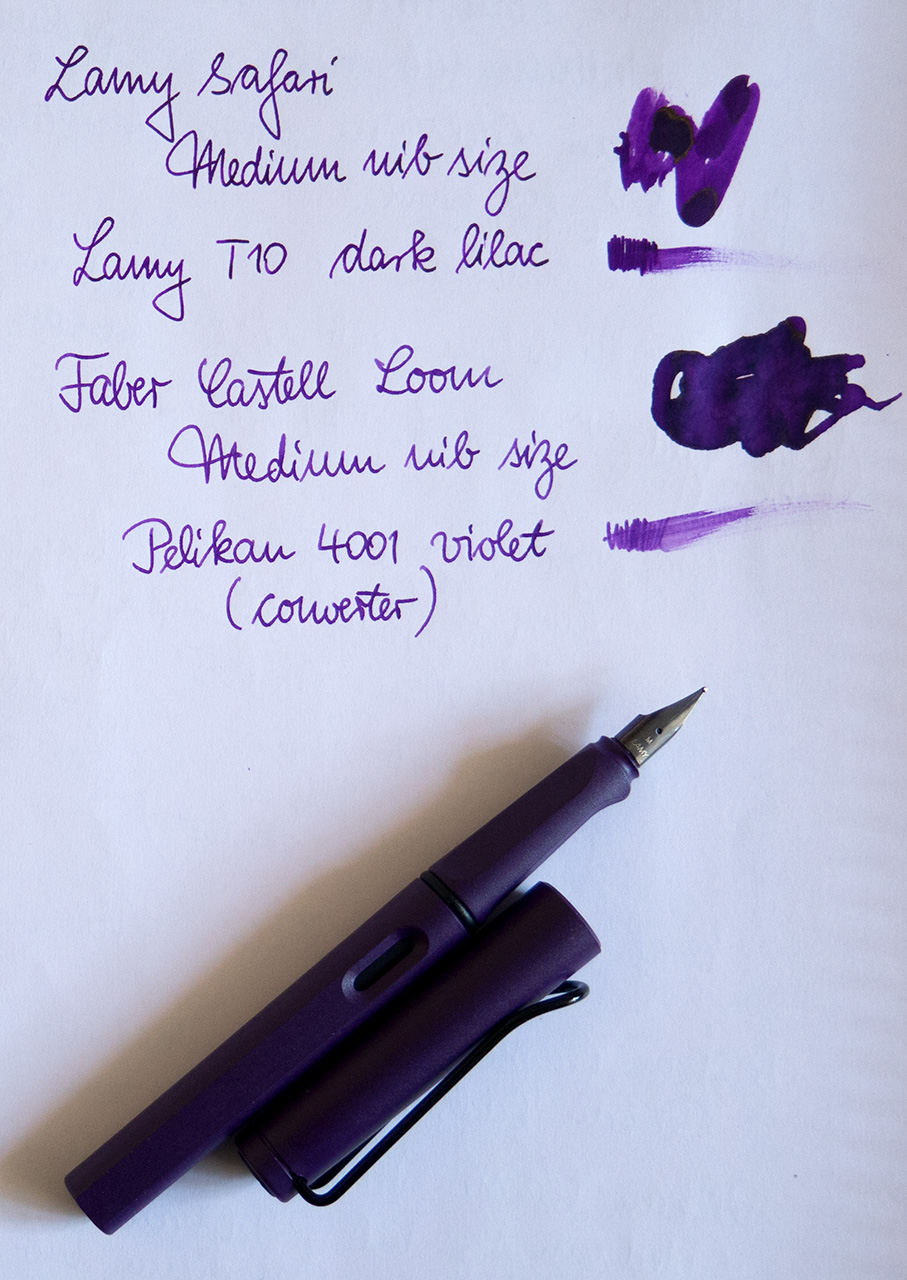 Lamy Safari
Medium nib size
Lamy T10 dark lilac
Faber Castell Loom
Medium nib size
Pelikan 4001 violet
(converter)
M
LAMY